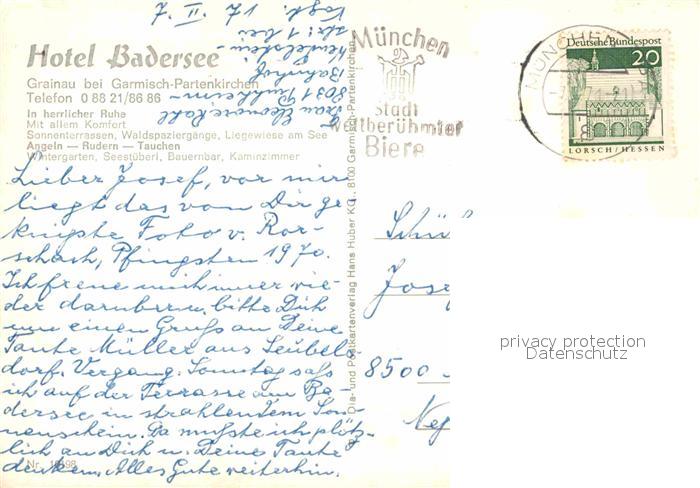 Hotel Badersee
Grainau bei Garmisch-Partenkirchen
Telefon 0 88 21/86 86
In herrlicher Ruhe
Mit allem Komfort
Sonnenterrassen, Waldspaziergänge, Liegewiese am See
Angeln — Rudern — Tauchen
Wintergarten, Seestüberl, Bauernbar, Kaminzimmer
Lieber Josef, vor mir
liegt das von Dir ge-
knipste Foto v. Ror-
schach, Pfingsten 1970.
Ich freue mich immer wie-
der darüber u. bitte Dich
um einen Gruß an Deine
Tante Müller aus Leubels-
dorf. Vergang. Sonntag saß
ich auf der Terrasse am Ba-
dersee in strahlendem Son-
nenschein. Da mußte ich plötz-
lich an Dich u. Deine Tante
denken. Alles Gute weiterhin.
Nr.
Frau Eleonore Kohl
8031 Puchheim-
Bahnhof
1 bei
17. II. 7
Dia- und Postkartenverlag Hans Huber KG., 8100 Garmisch-Partenkirchen
München
Stadt
weltberühmter
Biere
MÜNCHEN
Deutsche Bundespost
20
LORSCH/HESSEN
Schü
Jose
8500
privacy protection
Datenschutz